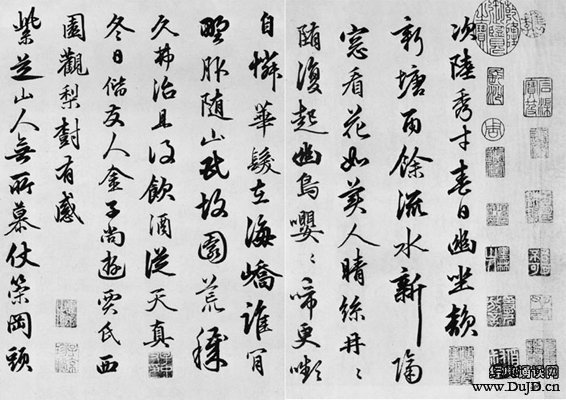 次陸秀才春日幽坐韻
新塘雨餘流水新隔
窓看花如美人晴絲冉〻
墮復起幽鳥嚶〻啼更嚬
自憐華髮在海嶠誰肯
野服隨山民故園荒穢
久弗治且須飲酒從天真
冬日偕友人金子尚遊賈氏西
園觀梨樹有感
紫芝山人無所慕仗策岡頭
www.DujD.cn